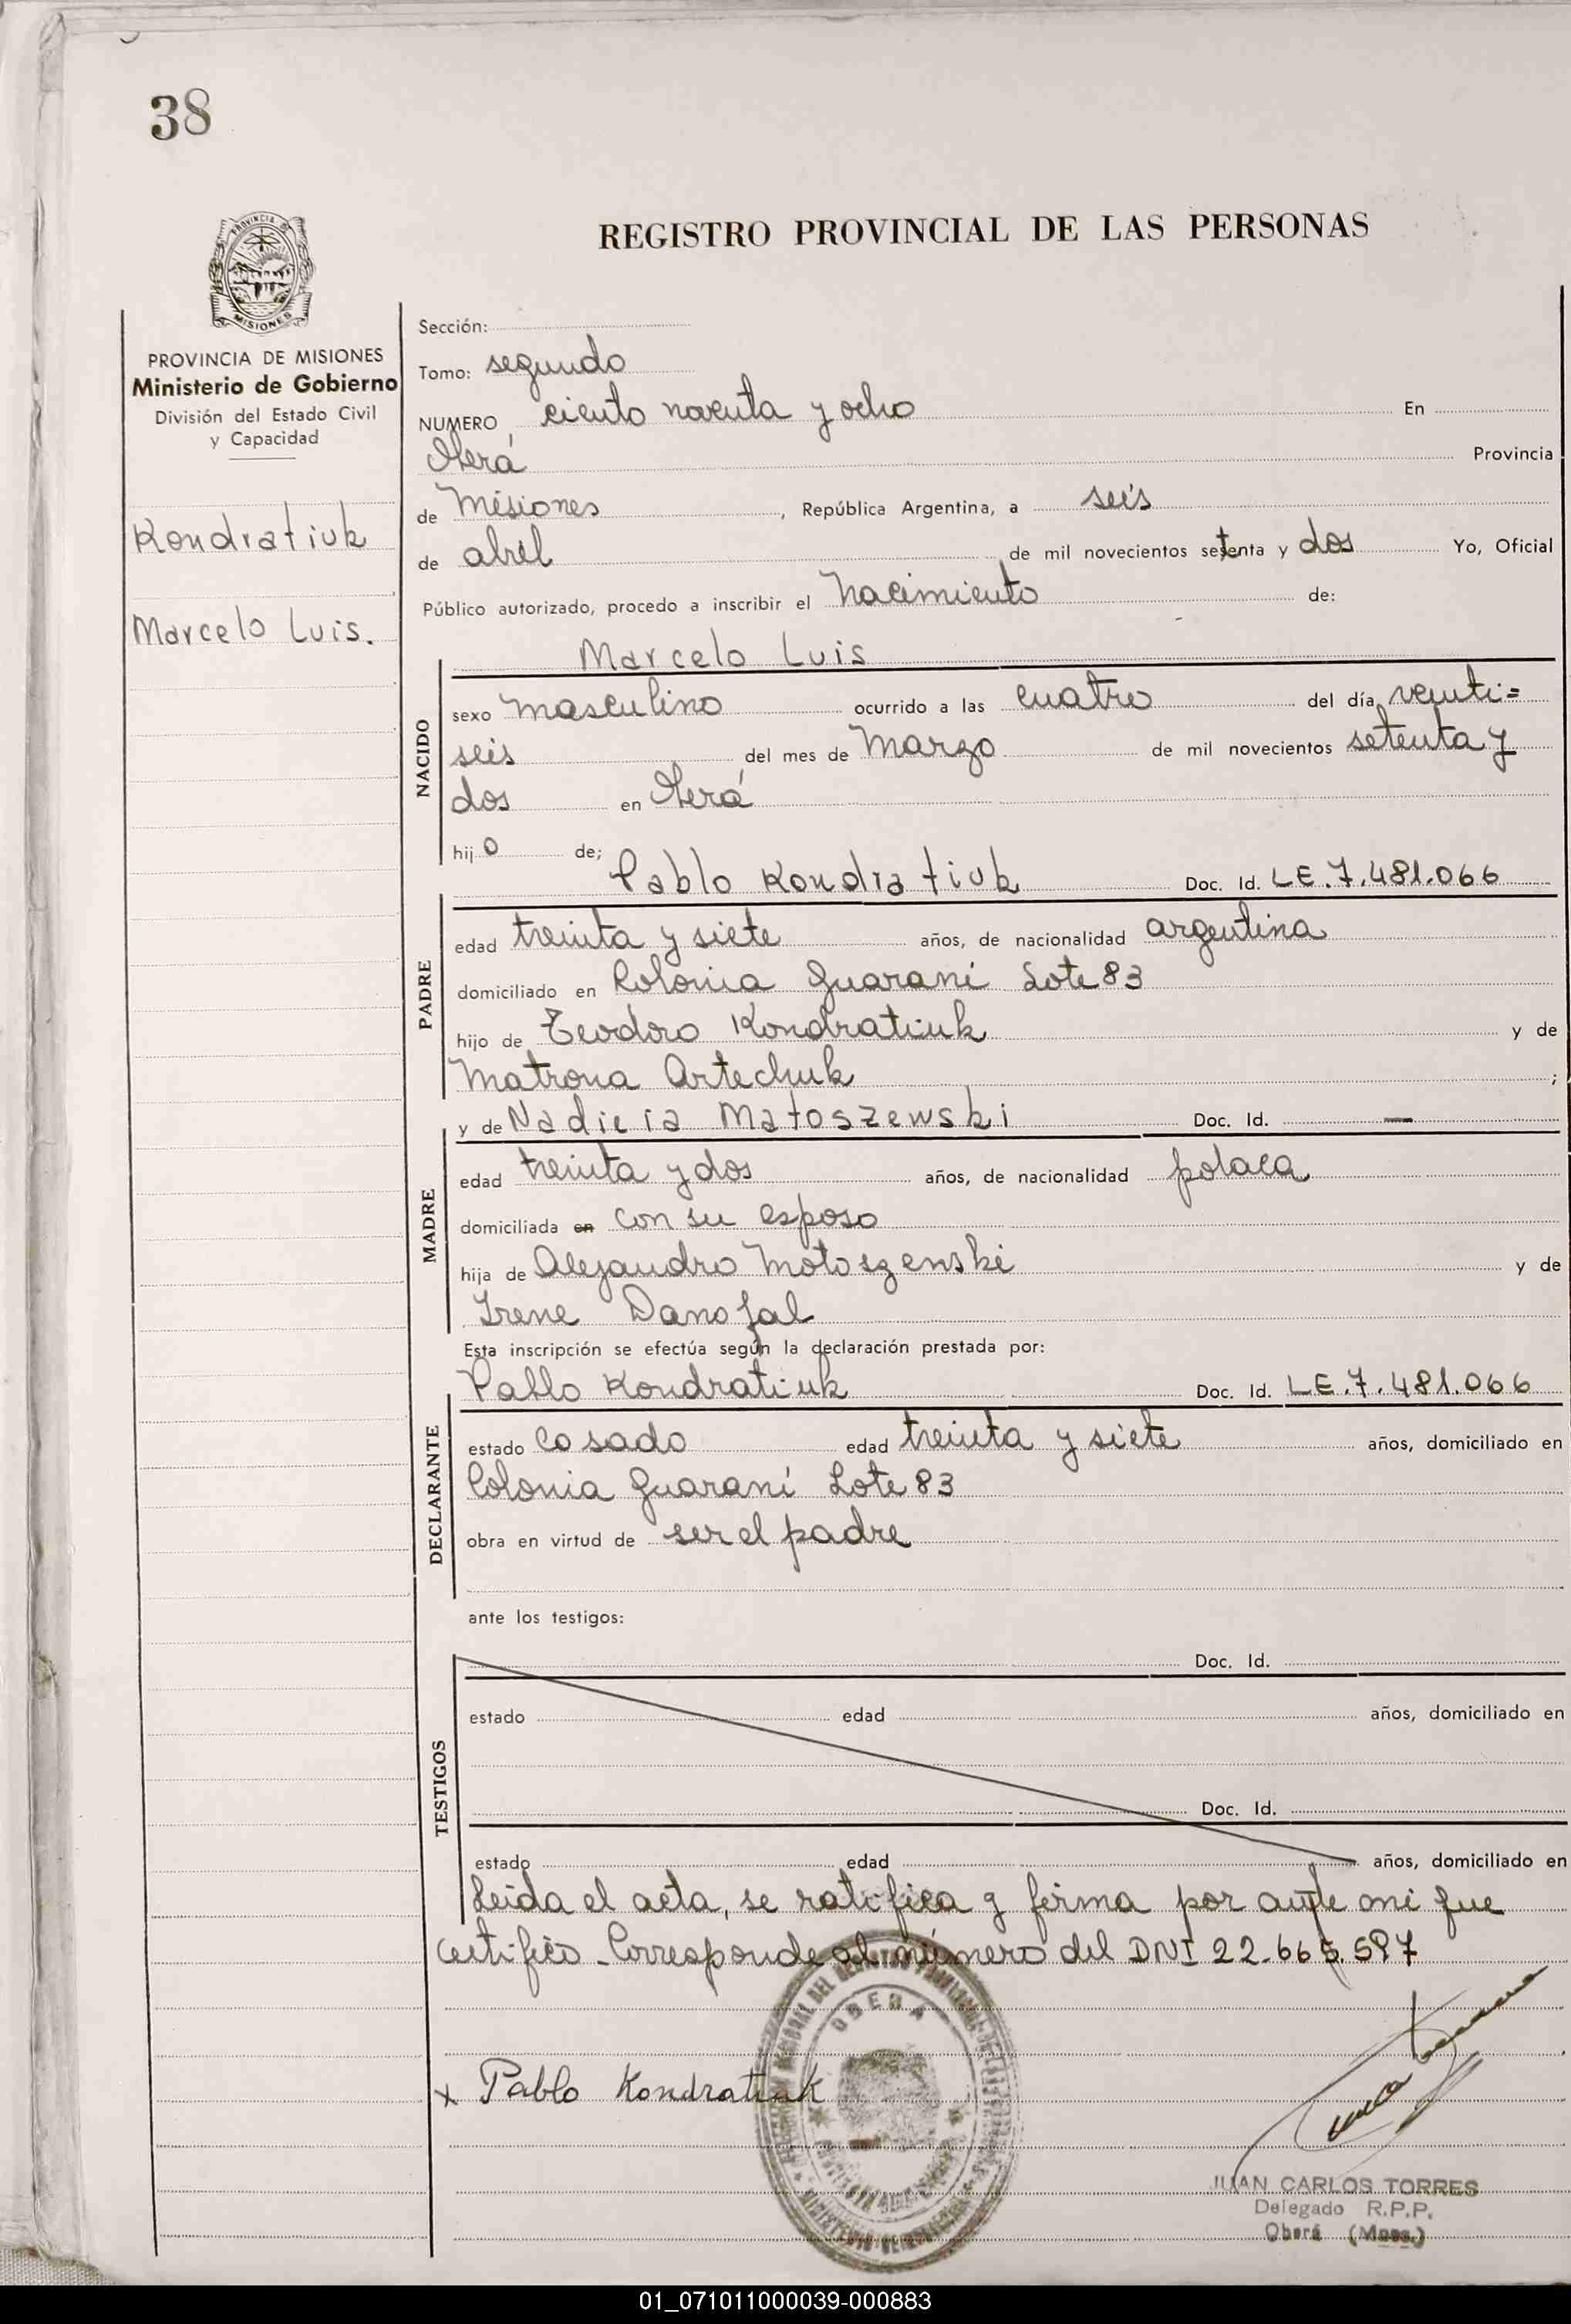 38
REGISTRO PROVINCIAL DE LAS PERSONAS
PROVINCIA
MISIONES
PROVINCIA DE MISIONES
Ministerio de Gobierno
División del Estado Civil
y Capacidad
Kondratiuk
Marcelo Luis.
Sección:
Tomo: segundo
NUMERO ciento noventa y ocho En
Oberá Provincia
de Misiones, República Argentina, a seis
de abril de mil novecientos setenta y dos Yo, Oficial
Público autorizado, procedo a inscribir el nacimiento de:
Marcelo Luis
NACIDO
sexo masculino ocurrido a las cuatro del día venti=
seis del mes de Marzo de mil novecientos setenta y
dos en Oberá
hijo de;
Pablo Kondratiuk Doc. Id. LE.7.481.066
PADRE
edad treinta y siete años, de nacionalidad argentina
domiciliado en Colonia Guaraní Lote 83
hijo de Teodoro Kondratiuk y de
Matrona Artechuk ;
y de Nadieia Matoszewski Doc. Id. —
MADRE
edad treinta y dos años, de nacionalidad polaca
domiciliada en con su esposo
hija de Alejandro Motoszenski y de
Irene Danofal
Esta inscripción se efectúa según la declaración prestada por:
Pablo Kondratiuk Doc. Id. LE.7.481.066
DECLARANTE
estado casado edad treinta y siete años, domiciliado en
Colonia Guaraní Lote 83
obra en virtud de ser el padre
ante los testigos:
TESTIGOS
Doc. Id.
estado edad años, domiciliado en
Doc. Id.
estado edad años, domiciliado en
Leída el acta, se ratifica y firma por ante mi que
certifico - Corresponde al número del DNI 22.665.597
OBERA
x Pablo Kondratiuk
JUAN CARLOS TORRES
Delegado R.P.P.
Oberá (Mnes.)
01_071011000039-000883